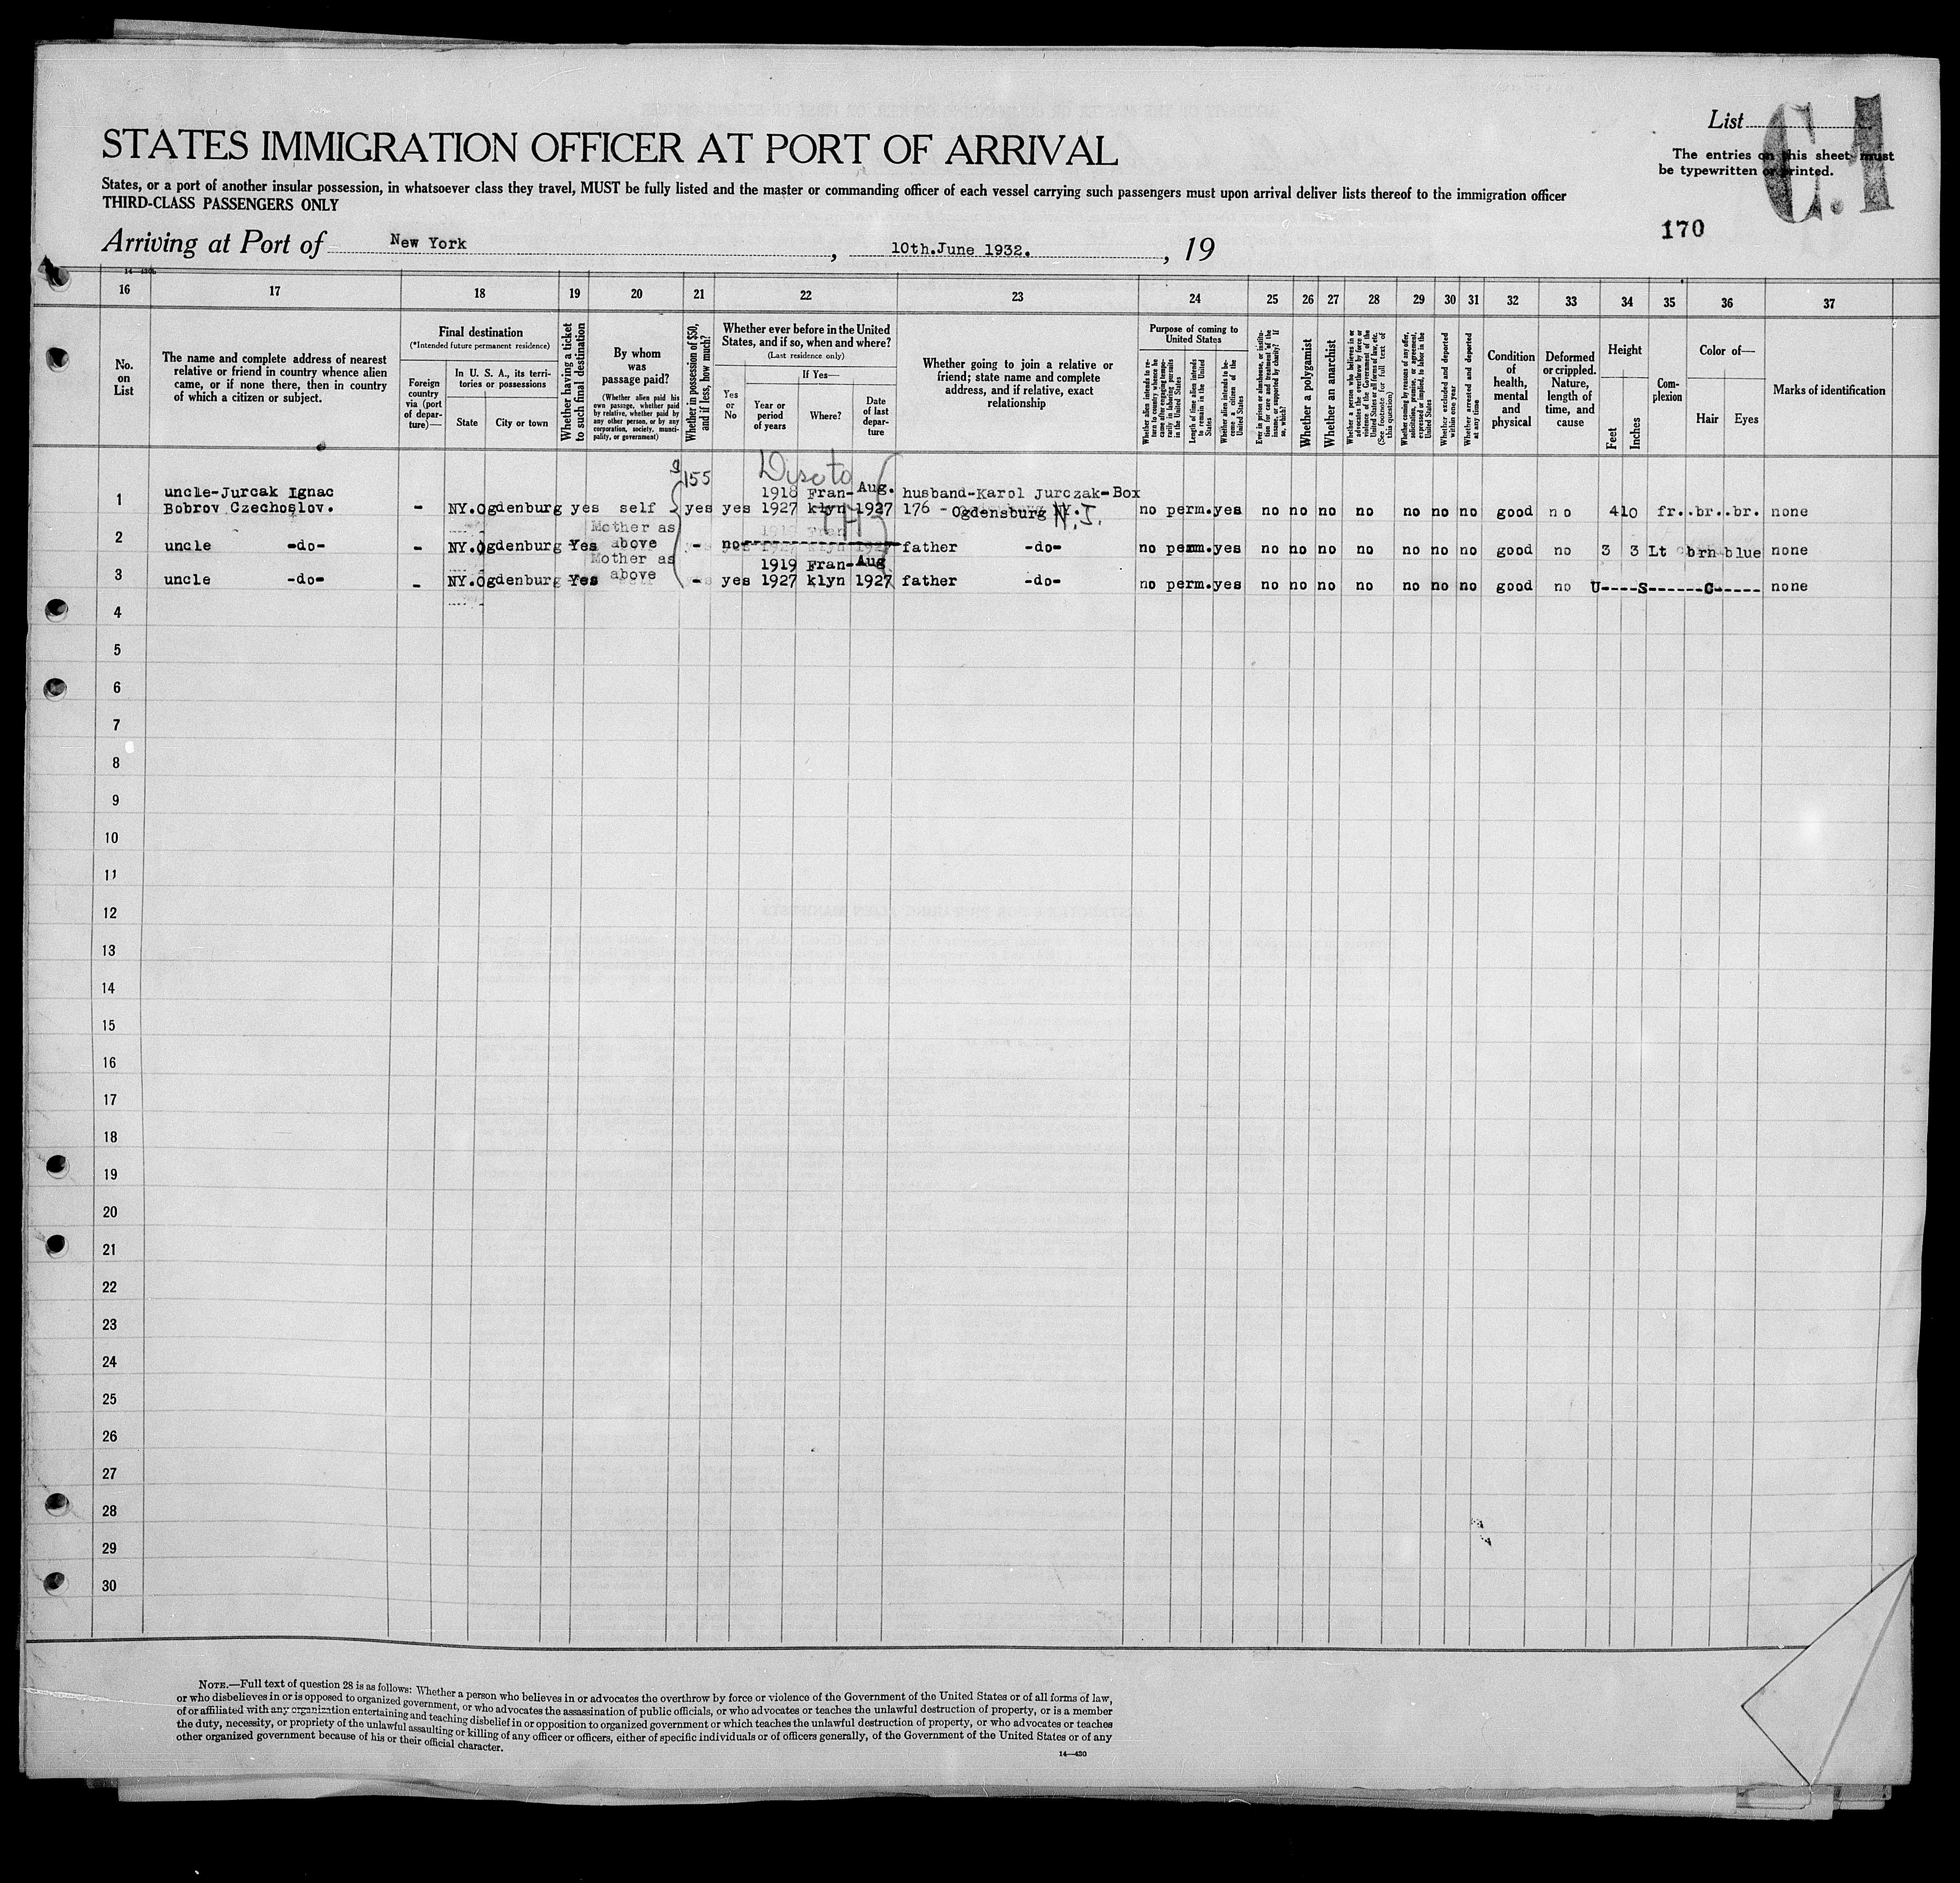 List
C.1
The entries on this sheet must
be typewritten or printed.
STATES IMMIGRATION OFFICER AT PORT OF ARRIVAL
States, or a port of another insular possession, in whatsoever class they travel, MUST be fully listed and the master or commanding officer of each vessel carrying such passengers must upon arrival deliver lists thereof to the immigration officer
THIRD-CLASS PASSENGERS ONLY
170
Arriving at Port of New York, 10th.June 1932., 19
16 17 18 19 20 21 22 23 24 25 26 27 28 29 30 31 32 33 34 35 36 37
No. on List
The name and complete address of nearest relative or friend in country whence alien came, or if none there, then in country of which a citizen or subject.
Final destination
(*Intended future permanent residence)
Foreign country via (port of departure)—
In U. S. A., its territories or possessions
State
City or town
Whether having a ticket to such final destination
By whom was passage paid?
(Whether alien paid his own passage, whether paid by relative, whether paid by any other person, or by any corporation, society, municipality, or government)
Whether in possession of $50, and if less, how much?
Whether ever before in the United States, and if so, when and where?
(Last residence only)
Yes or No
If Yes—
Year or period of years
Where?
Date of last departure
Whether going to join a relative or friend; state name and complete address, and if relative, exact relationship
Purpose of coming to United States
Whether alien intends to return to country whence he came after engaging temporarily in laboring pursuits in the United States
Length of time alien intends to remain in the United States
Whether alien intends to become a citizen of the United States
Ever in prison or almshouse, or institution for care and treatment of the insane, or supported by charity? If so, which?
Whether a polygamist
Whether an anarchist
Whether a person who believes in or advocates the overthrow by force or violence of the Government of the United States or all forms of law, etc. (See footnote for full text of this question)
Whether coming by reason of any offer, solicitation, promise, or agreement, expressed or implied, to labor in the United States
Whether excluded and deported within one year
Whether arrested and deported at any time
Condition of health, mental and physical
Deformed or crippled. Nature, length of time, and cause
Height
Feet
Inches
Complexion
Color of—
Hair
Eyes
Marks of identification
155
1 uncle-Jurcak Ignac 1918 Fran- Aug. husband-Karol Jurczak-Box
Bobrov Czechoslov. - NY. Ogdenburg yes self yes yes 1927 klyn 1927 176 - Ogdensburg NY. N.J. no perm. yes no no no no no no no good no 4 10 fr. br. br. none
Mother as
2 uncle -do- - NY. Ogdenburg Yes above - no father -do- no perm. yes no no no no no no no good no 3 3 Lt brn blue none
Mother as 1919 Fran- Aug
3 uncle -do- - NY. Ogdenburg Yes above - yes 1927 klyn 1927 father -do- no perm. yes no no no no no no no good no U----S------C----- none
4
5
6
7
8
9
10
11
12
13
14
15
16
17
18
19
20
21
22
23
24
25
26
27
28
29
30
NOTE.—Full text of question 28 is as follows: Whether a person who believes in or advocates the overthrow by force or violence of the Government of the United States or of all forms of law,
or who disbelieves in or is opposed to organized government, or who advocates the assassination of public officials, or who advocates or teaches the unlawful destruction of property, or is a member
of or affiliated with any organization entertaining and teaching disbelief in or opposition to organized government or which teaches the unlawful destruction of property, or who advocates or teaches
the duty, necessity, or propriety of the unlawful assaulting or killing of any officer or officers, either of specific individuals or of officers generally, of the Government of the United States or of any
other organized government because of his or their official character.
14—430